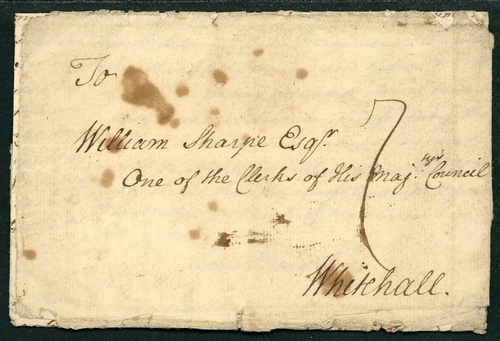 To
William Sharpe Esqr.
One of the Clerks of His Maj.tys Council
7
Whitehall.